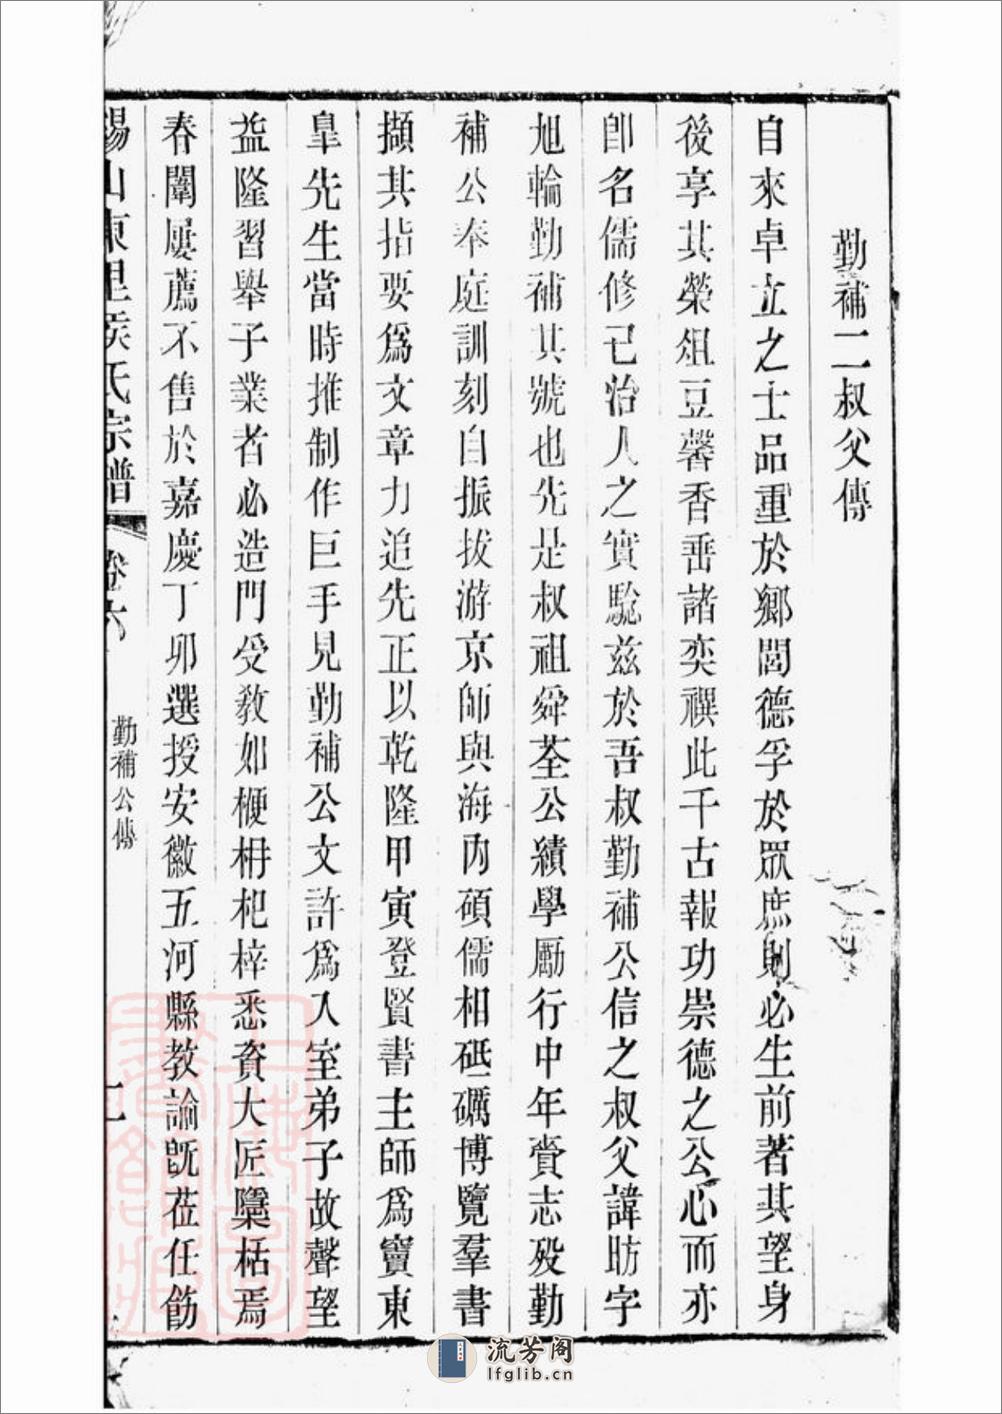 勤補二叔父傳
自來卓立之士品重於鄉閭德孚於眾庶則必生前著其望身
後享其榮俎豆馨香垂諸奕禩此千古報功崇德之公心而亦
卽名儒修已治人之實騐茲於吾叔勤補公信之叔父諱昉字
旭輪勤補其號也先是叔祖舜荃公績學勵行中年賫志殁勤
補公奉庭訓刻自振拔游京師與海內碩儒相砥礪博覽羣書
擷其指要爲文章力追先正以乾隆甲寅登賢書主師爲竇東
臯先生當時推制作巨手見勤補公文許爲入室弟子故聲望
益隆習舉子業者必造門受教如楩枏杞梓悉資大匠櫽栝焉
春闈屢薦不售於嘉慶丁卯選授安徽五河縣教諭旣莅任飭
錫山東里侯氏宗譜
卷六
勤補公傳
流芳阁
lfglib.cn